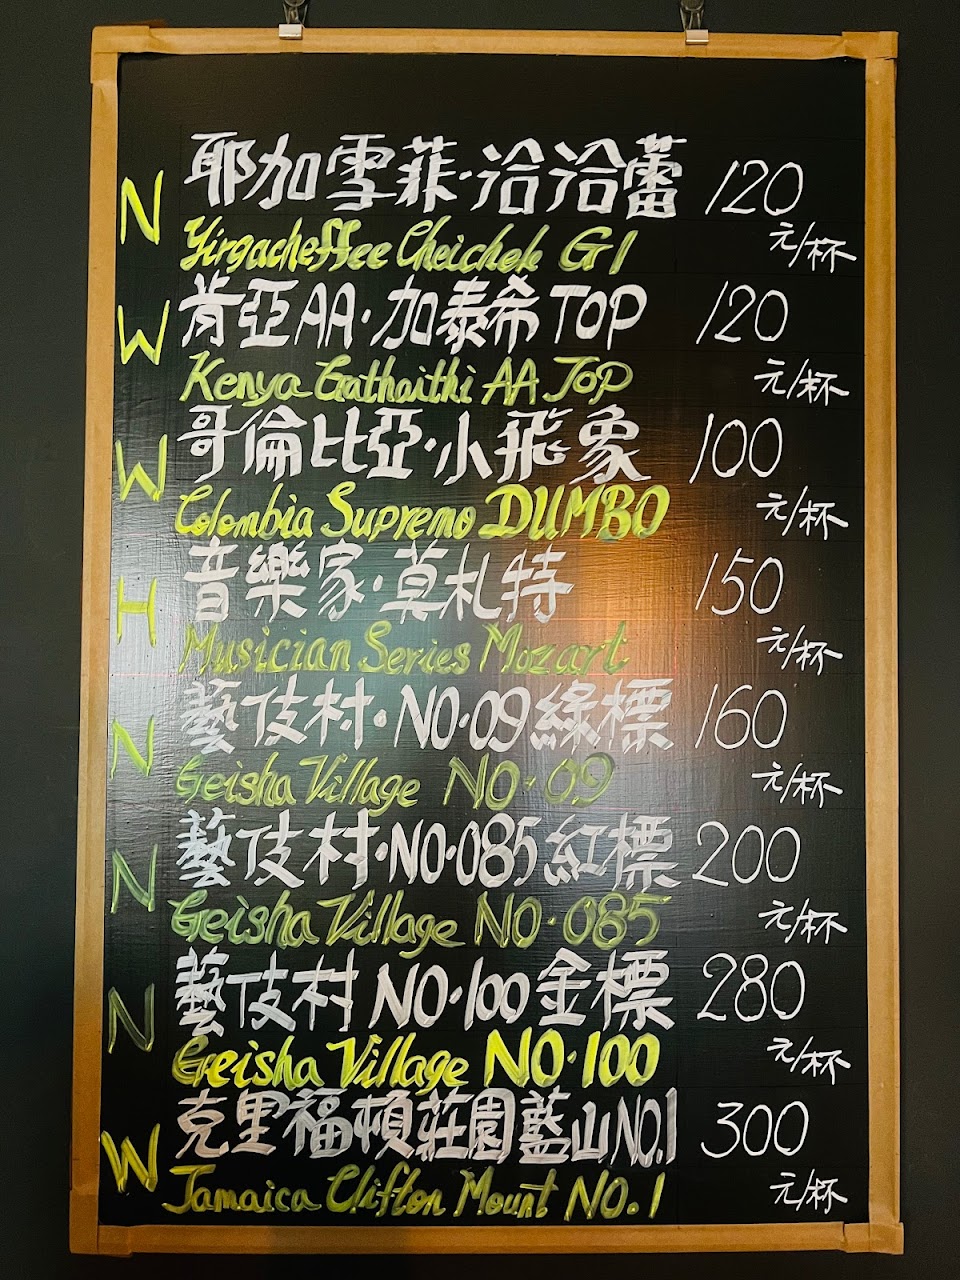 N 耶加雪菲·洽洽蕾 120
Yirgacheffee Cheichele G1 元/杯
W 肯亞AA·加泰希TOP 120
Kenya Gathaithi AA TOP 元/杯
W 哥倫比亞·小飛象 100
Colombia Supremo DUMBO 元/杯
H 音樂家·莫札特 150
Musician Series Mozart 元/杯
N 藝伎村·NO·09綠標 160
Geisha Village NO·09 元/杯
N 藝伎村·NO·085紅標 200
Geisha Village NO·085 元/杯
N 藝伎村 NO·100金標 280
Geisha Village NO·100 元/杯
W 克里福頓莊園藍山NO.1 300
Jamaica Clifton Mount NO.1 元/杯